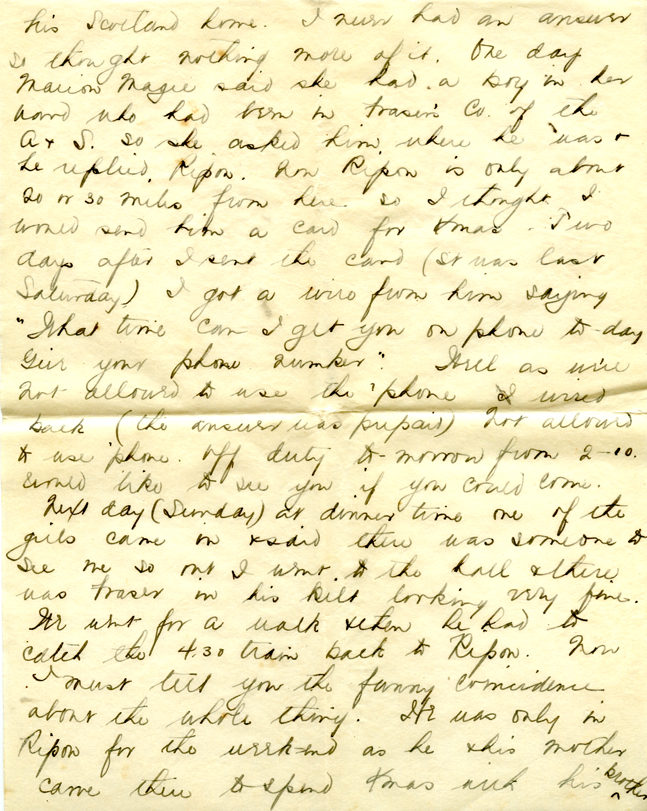 his Scotland home. I never had an answer
so thought nothing more of it. One day
Marion Magee said she had a boy in her
ward who had been in Fraser's Co. of the
A & S. so she asked him where he was &
he replied, Ripon. Now Ripon is only about
20 or 30 miles from here so I thought I
would send him a card for Xmas. Two
days after I sent the card (it was last
Saturday) I got a wire from him saying
"What time can I get you on phone to-day
Give your phone number". Well as we're
not allowed to use the 'phone I wired
back (the answer was prepaid) Not allowed
to use 'phone. Off duty to-morrow from 2-10.
Would like to see you if you could come.
Next day (Sunday) at dinner time one of the
girls came in & said there was someone to
see me so out I went to the hall & there
was Fraser in his kilt looking very fine.
We went for a walk & then he had to
catch the 4.30 train back to Ripon. Now
I must tell you the funny coincidence
about the whole thing. He was only in
Ripon for the week-end as he & his mother
came there to spend Xmas with his brother